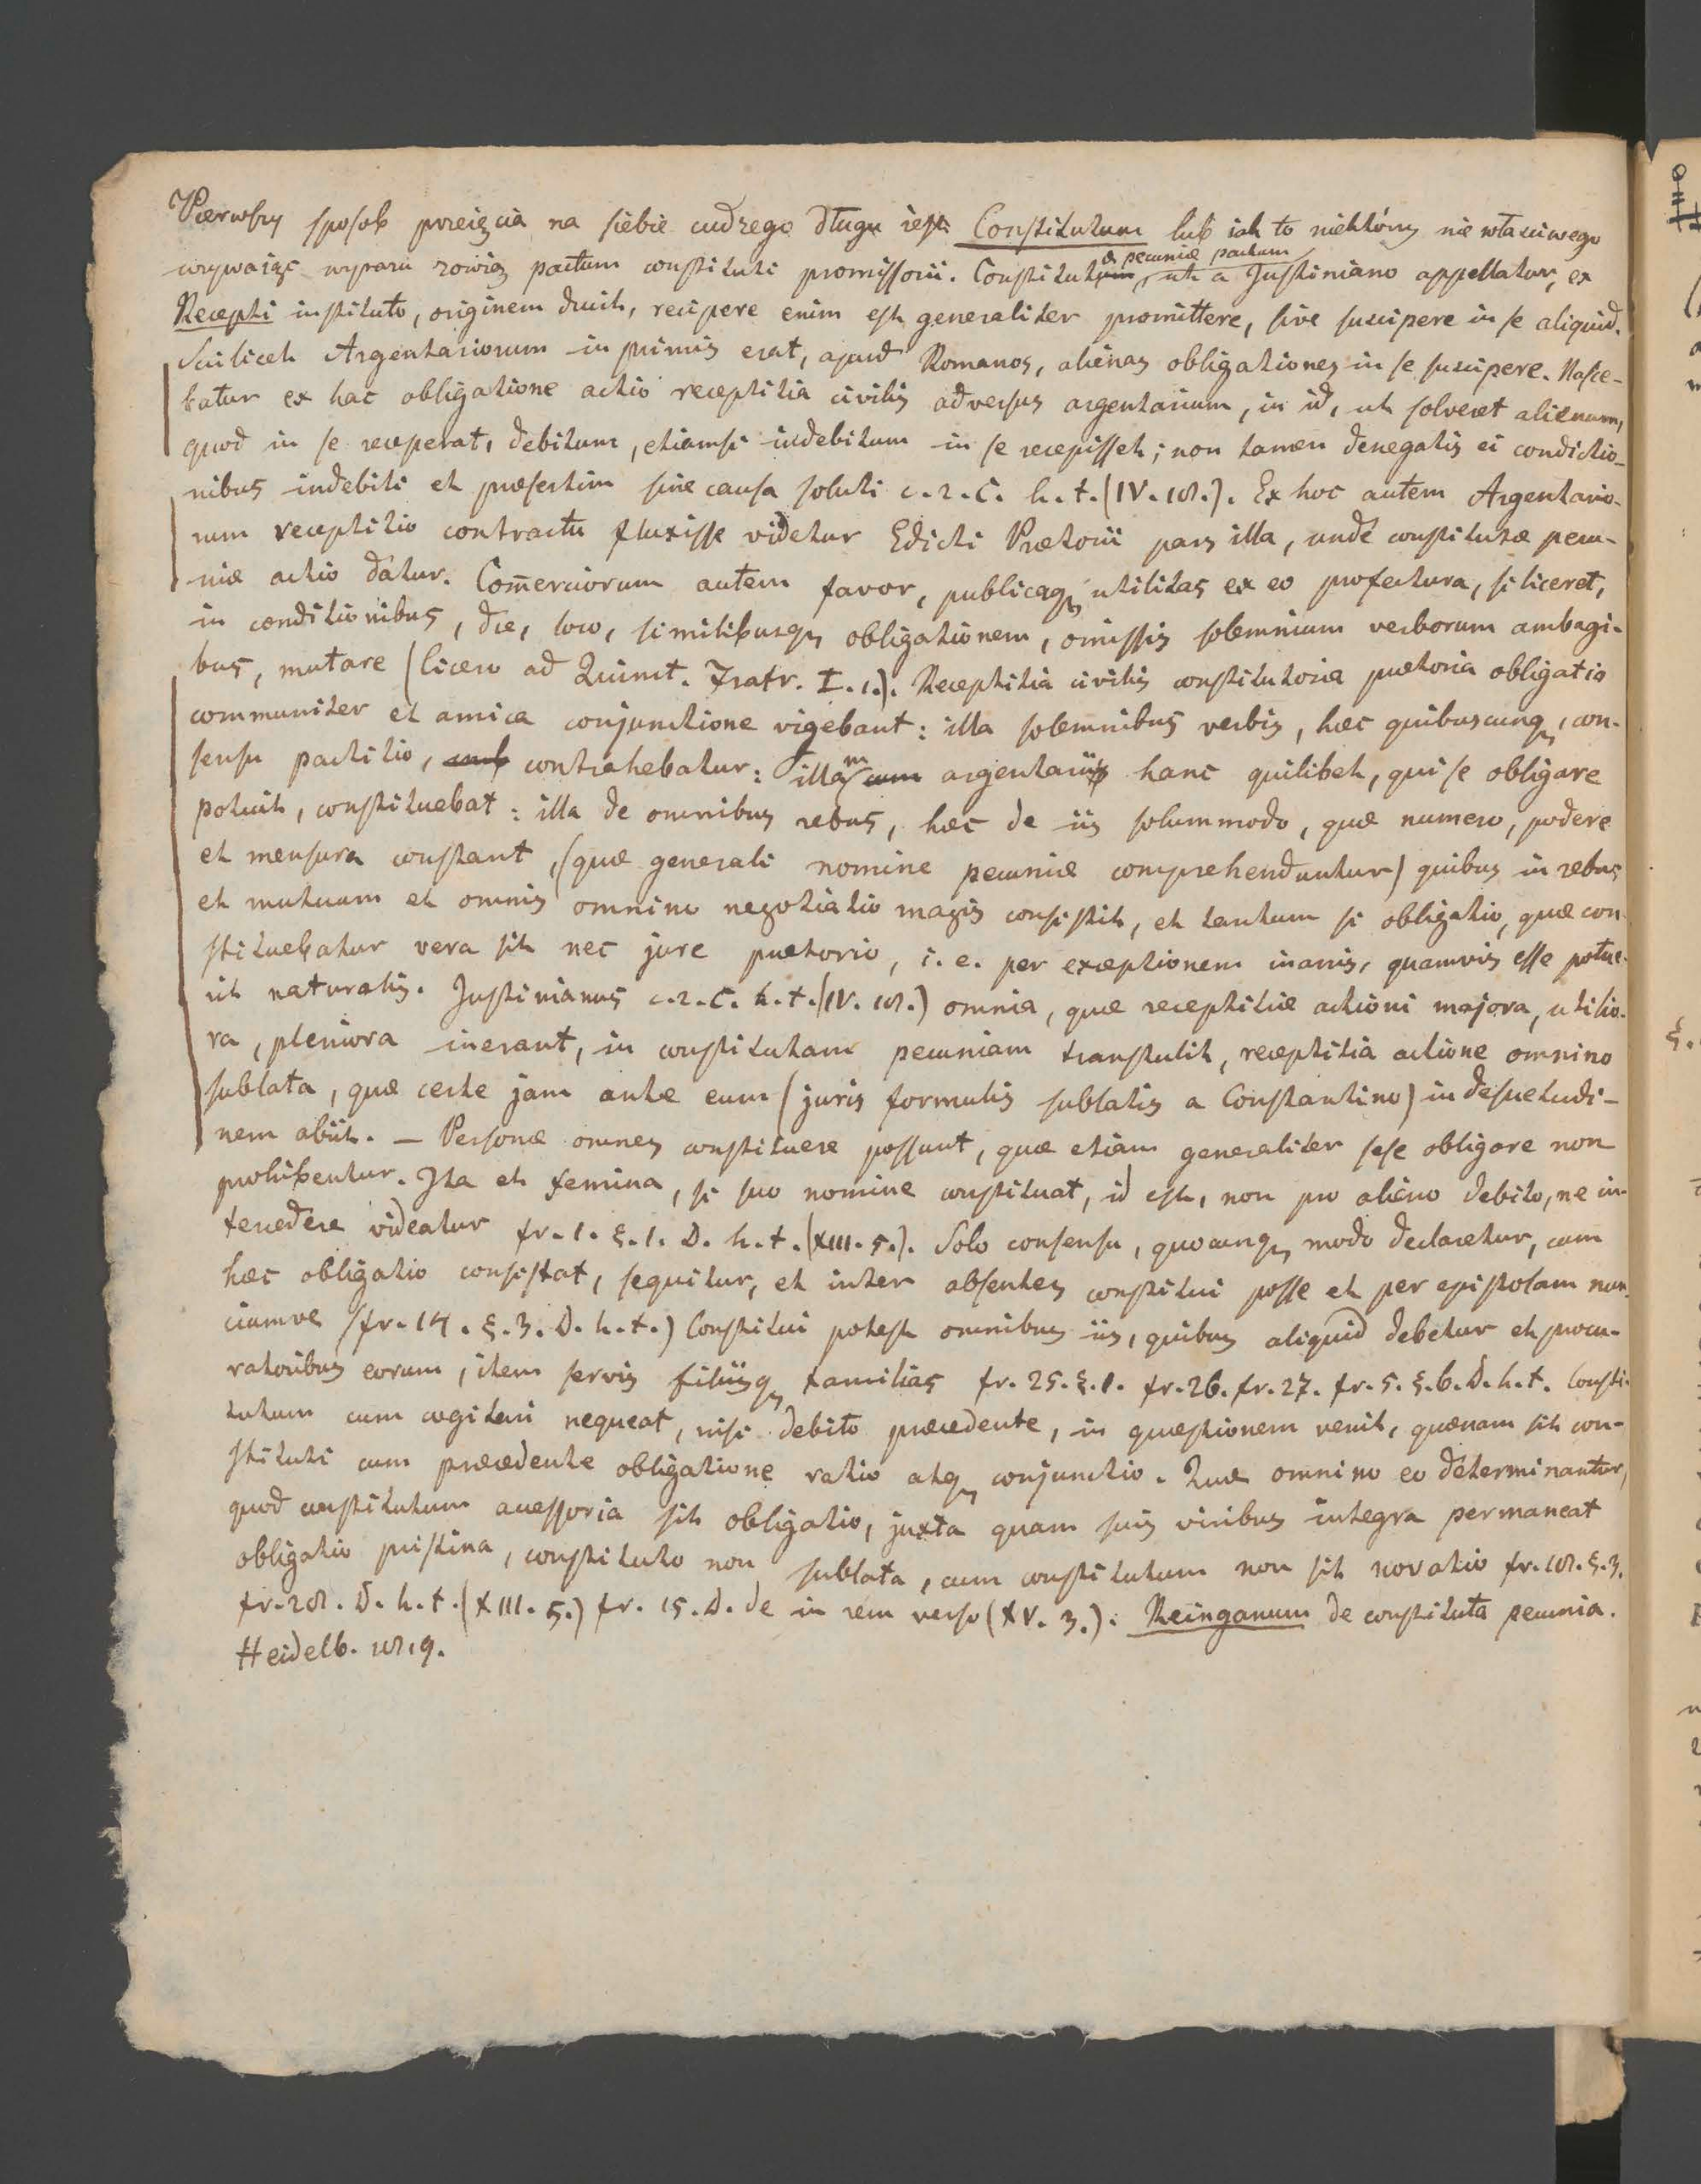 Pierwszy sposob przeięcia na siebie cudzego długu iest Constitutum lub iak to niektórzy nie właściwego
używaiąc wyrazu zowią pactum constituti promissorii. Constitutæ pecuniæ pactum, uti a Justiniano appellatur, ex
Recepti instituto, originem ducit, recipere enim est generaliter promittere, sive suscipere in se aliquid.
Scilicet Argentariorum in primis erat, apud Romanos, alienas obligationes in se suscipere. Nasce-
batur ex hac obligatione actio receptitia civilis adversus argentarium, in id, ut solveret alienum,
quod in se receperat, debitum, etiamsi indebitum in se recepisset; non tamen denegatis ei condictio-
nibus indebiti et præsertim sine causa soluti c. 2. C. h. t. (IV. 18.). Ex hoc autem Argentario-
rum receptitio contractu fluxisse videtur Edicti Prætorii pars illa, unde constitutæ pecu-
niæ actio datur. Com̄erciorum autem favor, publicaq utilitas ex eo profectura, si liceret,
in conditionibus, die, loco, similibusq obligationem, omissis solemnium verborum ambagi-
bus, mutare (Cicero ad Quinct. Fratr. I. 1.). Receptitia civilis constitutoria prætoria obligatio
communiter et amica conjunctione vigebant: illa solemnibus verbis, hæc quibuscunq, con-
sensu pactitio, contrahebatur: illam argentarii hanc quilibet, qui se obligare
potuit, constituebat: illa de omnibus rebus, hæc de iis solummodo, quæ numero, podere
et mensura constant, (quæ generali nomine pecuniæ comprehenduntur) quibus in rebus
et mutuum et omnis omnino negotiatio magis consistit, et tantum si obligatio, quæ con-
stituebatur vera sit nec jure prætorio, i. e. per exceptionem inanis, quamvis esse potue-
rit naturalis. Justinianus c. 2. C. h. t. (IV. 18.) omnia, quæ receptitiæ actioni majora, utilio-
ra, pleniora inerant, in constitutam pecuniam transtulit, receptitia actione omnino
sublata, quæ certe jam ante eum (juris formulis sublatis a Constantino) in desuetudi-
nem abiit. — Personæ omnes constituere possunt, quæ etiam generaliter sese obligare non
prohibentur. Ita et femina, si suo nomine constituat, id est, non pro alieno debito, ne in-
tercedere videatur fr. 1. §. 1. D. h. t. (XIII. 5.). Solo consensu, quocunq modo declaretur, cum
hæc obligatio consistat, sequitur, et inter absentes constitui posse et per epistolam nun-
ciumve (fr. 14. §. 3. D. h. t.) Constitui potest omnibus iis, quibus aliquid debetur et procu-
ratoribus eorum, item servis filiisq familias fr. 25. §. 1. fr. 26. fr. 27. fr. 5. §. 6. D. h. t. Consti-
tutum cum cogitari nequeat, nisi debito præcedente, in quæstionem venit, quænam sit con-
stituti cum præcedente obligatione ratio atq conjunctio. Quæ omnino eo determinantur,
quod constitutum accessoria sit obligatio, juxta quam suis viribus integra permaneat
obligatio pristina, constituto non sublata, cum constitutum non sit novatio fr. 18. §. 3.
fr. 28. D. h. t. (XIII. 5.) fr. 15. D. de in rem verso (XV. 3.). Reinganum de constituta pecunia.
Heidelb. 1819.